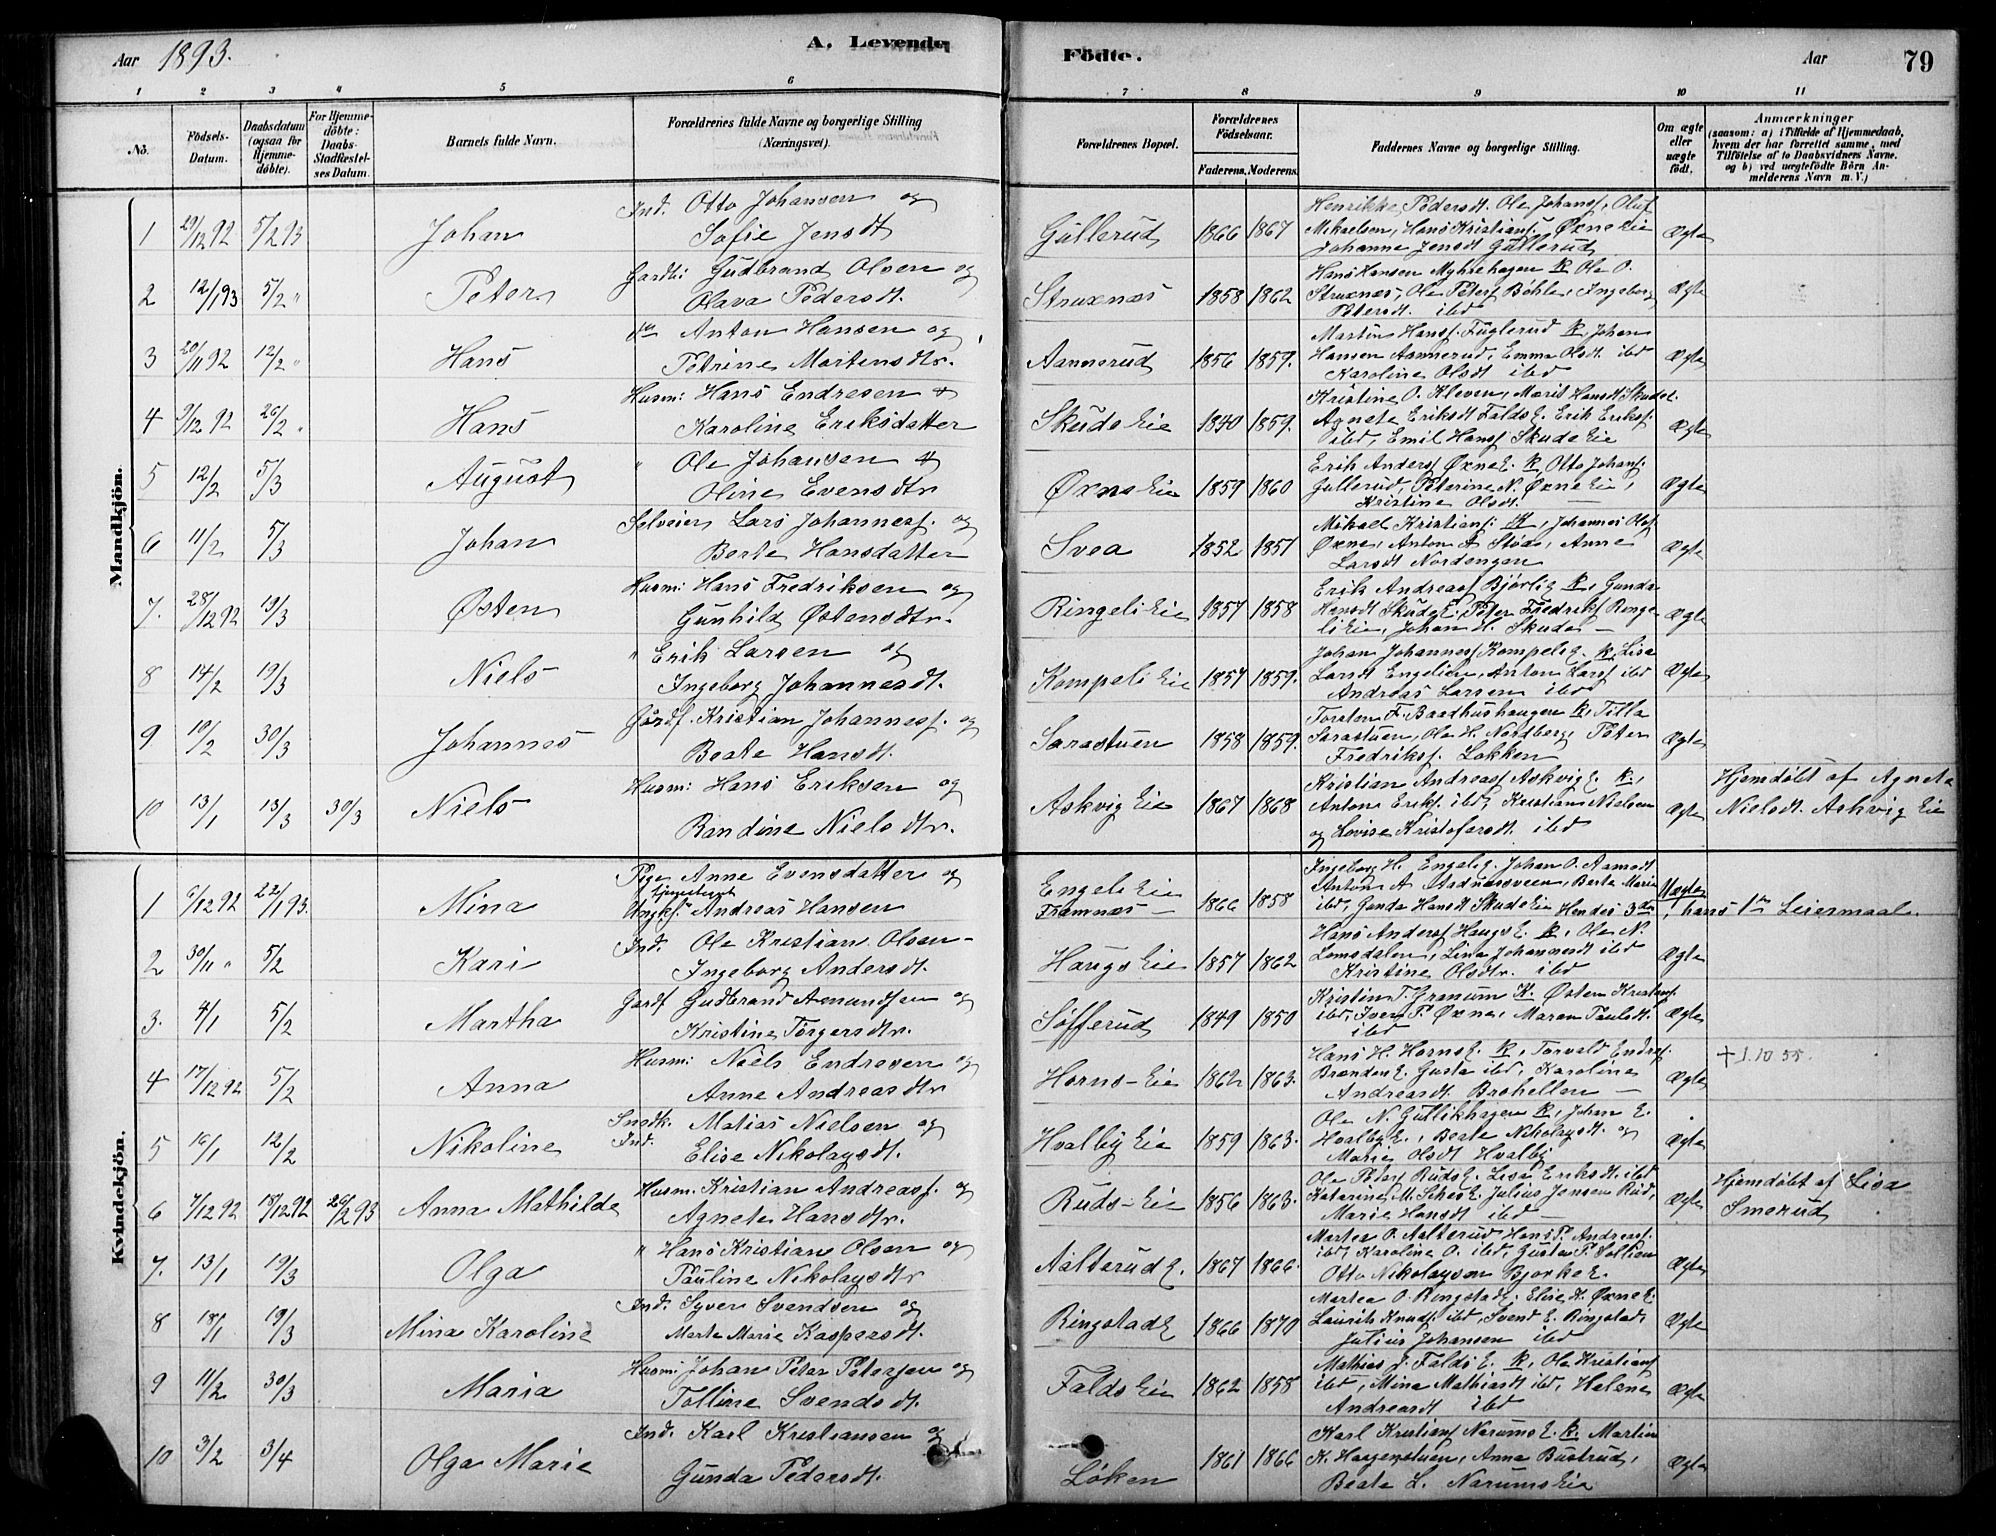 Aar 1893. A. Levende Födte. Aar 79
1 2 3 4 5 6 7 8 9 10 11
No. Födsels-Datum. Daabsdatum (ogsaa for Hjemme-döbte). For Hjemme-döbte: Daabs-Stadfæstel-ses Datum. Barnets fulde Navn. Forældrenes fulde Navne og borgerlige Stilling (Næringsvei). Forældrenes Bopæl. Forældrenes Födselsaar. Faderens. Moderens. Faddernes Navne og borgerlige Stilling. Om ægte eller uægte födt. Anmærkninger (saasom: a) i Tilfælde af Hjemmedaab, hvem der har forrettet samme, med Tilföielse af to Daabsvidners Navne. og b) ved uægtefödte Börn An-melderens Navn m. V.)
Mandkjön.
1 29/12 92 5/2 93 Johan Ind. Otto Johansen og Sofie Jensdt Gullerud 1866 1867 Henrikke Pedersdt. Ole Johansf, Oluf Mikaelsen, Hans Kristiansf. Øxne Eie Johanne Jensdt Gullerud Ægte
2 12/1 93 5/2 " Peter Gardbr: Gudbrand Olsen og Olava Pedersdt. Struxnæs 1858 1862 Hans Hansen Myhrehagen K. Ole O. Struxnæs, Ole Petersf Böhle, Ingeborg Petersdt. ibd Ægte
3 20/11 92 12/2 " Hans do Anton Hansen og Petrine Mortensdtr. Aannerud 1856 1859. Martin Hansf. Fuglerud K. Johan Hansen Aannerud, Emma Olsdt ibd Karoline Olsdt ibd Ægte
4 9/12 92 26/2 " Hans Husm: Hans Endresen & Karoline Eriksdatter Skuds Eie 1840 1859. Kristine O. Kleven, Marit Hansdt Skudst. Agnete Eriksdt Falds E. Erik Eriksf. ibd, Emil Hansf Skuds Eie Ægte
5 12/2 5/3 August " Ole Johansen & Oline Evensdtr Øxne Eie 1859 1860 Erik Andersf Øxne E. K Otto Johansf. Gullerud, Peterine N. Øxne Eie, Kristine Olsdt. — Ægte
6 11/2 5/3 Johan Selveier Lars Johannesf. og Berte Hansdatter Svea 1852 1851 Mikael Kristiansf: K, Johannes Olsf Øxne, Anton A Støde, Anne Larsdt Nordengen Ægte
7. 28/12 92 19/3 Østen Husm: Hans Fredriksen og Gunhild Østensdtr. Ringeli Eie 1857 1858 Erik Andreasf Bjørlig K, Gunda Hansdt Skude E, Peter Fredriksf Ringeli Eie, Johan H. Skude — Ægte
8 14/2 19/3 Niels " Erik Larsen og Ingeborg Johannesdt. Kompeli Eie 1857 1859. Johan Johannesf Kompelig. K, Lisa Larsdt Engelien, Anton Larsf ibd Andreas Larsen ibd Ægte
9 10/2 30/3 Johannes Gårdf. Kristian Johannesf. og Beate Hansdt. Sarastuen 1858 1859. Torsten F. Baadhushaugen K, Tilla Sarastuen, Ole H. Nordberg, Peter Fredriksf. Løkken Ægte
10 13/1 13/3 30/3 Niels Husm: Hans Eriksen og Randine Nielsdtr. Askvig Eie 1867 1868 Kristian Andreasf Askvig E. K, Anton Eriksf. ibd, Kristians Nielsen og Lovise Kristofersdt. ibd Ægte Hjemdøbt af Agnete Nielsdt. Askvig Eie
Kvindekjön.
1 6/12 92 22/1 93. Mina Pige Anne Evensdatter og Ungkf. Andreas Hansen Engeli Eie Framnæs — 1866 1858 Ingeborg H. Engelig. Johan O. Aamodt Anton A Aadnæssveen, Berte Marie ibd, Gunda Hansdt Skude Eie Uægte Hendes 3die, hans 1ste Leiermaal.
2 30/11 " 5/2 Kari Ind. Ole Kristian Olsen — Ingeborg Andersdt. Haugs Eie 1857 1862 Hans Andersf Haugs E. K, Ole N. Lomsdalen, Lina Johannesdt ibd Kristine Olsdtr. ibd Ægte
3. 4/1 5/2 Martha Gardf Gudbrand Amundsen og Kristine Torgersdtr. Søfferud 1849 1850 Kristin T. Granum K. Østen Kristiansf. ibd, Iver P. Øxne, Maren Paulsdt. ibd Ægte
4 17/12 92 5/2 Anna Husm: Niels Endresen og Anne Andreasdtr Horns-Eie 1862 1863. Hans H. Horns E. K, Torvald Endresf. Brænden E. Gusta ibd, Karoline Andreasdt. Brohellen — Ægte † 1.10 55.
5 16/1 12/2 Nikoline Snedk. Ind. Matias Nielsen og Elise Nikolaysdt. Hvalby Eie 1859 1863. Ole N. Gullikhagen K, Johan E. Hvalby E., Beate Nikolaysdt. og Marie Olsdt Hvalby Ægte
6 7/12 92 18/12 92 26/2 93 Anna Mathilde Husm. Kristian Andreasf. og Agnete Hansdtr. Ruds-Eie 1856 1863. Ole Petersf Ruds E. Lisa Eriksdt. ibd Katerine M. Sches E. Julius Jensen Rud, Marie Hansdt ibd — Ægte Hjemdøbt af Lisa Smerud
7. 13/1 19/3 Olga " Hans Kristian Olsen og Pauline Nikolaysdtr Aalterud E. 1867 1866. Martea O. Aalterud, Hans P. Andreasf. ibd, Karoline O. ibd, Gustav P. Sollien Otto Nikolaysen Bjørke E. Ægte
8 18/1 19/3 Mina Karoline Ind. Syver Svendsen og Marte Marie Kaspersdt. Ringstad E 1866 1870 Martea O. Ringstad E. Elise K. Øxne E. Laurits Knudsf. ibd, Svend E. Ringstad, Julius Johansen ibd Ægte
9 11/2 30/3 Maria Husm: Johan Peter Petersen og Tolline Svendsdt. Falds Eie 1862 1858 Mathias J. Falds E. K, Ole Kristiansf ibd, Mina Mathiasdt ibd, Helene Andreasdt ibd Ægte
10 3/2 3/4 Olga Marie Ind. Karl Kristiansen og Gunda Pedersdt. Løken 1861 1866 Karl Kristiansf Narums E. K. Martin K. Haugenstuen, Anna Bustrud, Beate L. Narums Eie Ægte